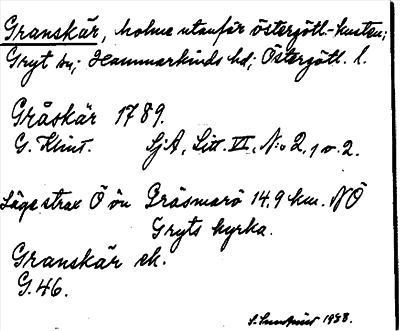 Granskär, holme utanför östergötl.-kusten;
Gryt sn; Hammarkinds hd; Östergötl. l.
Gråskär 1789.
G. Klint. SjA, Litt. VI, N:o 2, 1 o. 2.
Läge strax Ö ön Gräsmarö 14,9 km. NÖ
Gryts kyrka.
Granskär ek.
G.46.
S. 1928.